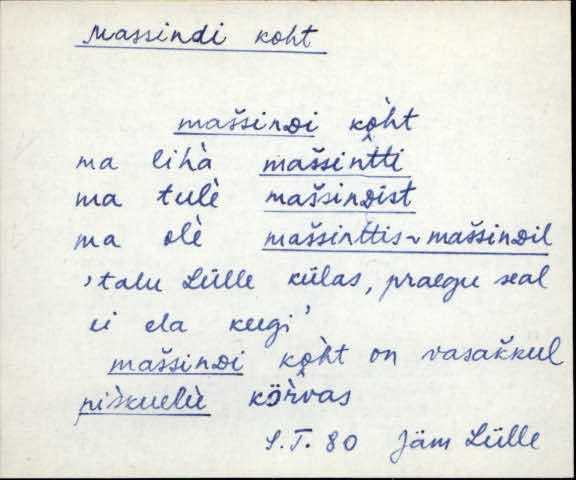 Massindi koht
mašsinDi kò̭ht
ma lihà mašsintti
ma tulè mašsinDist
ma olè mašsinttis ~ mašsinDil
'talu Lülle külas, praegu seal
ei ela keegi'
mašsinDi kò̭ht on vasakkul
kö̀rvas
S.T. 80 Jäm Lülle